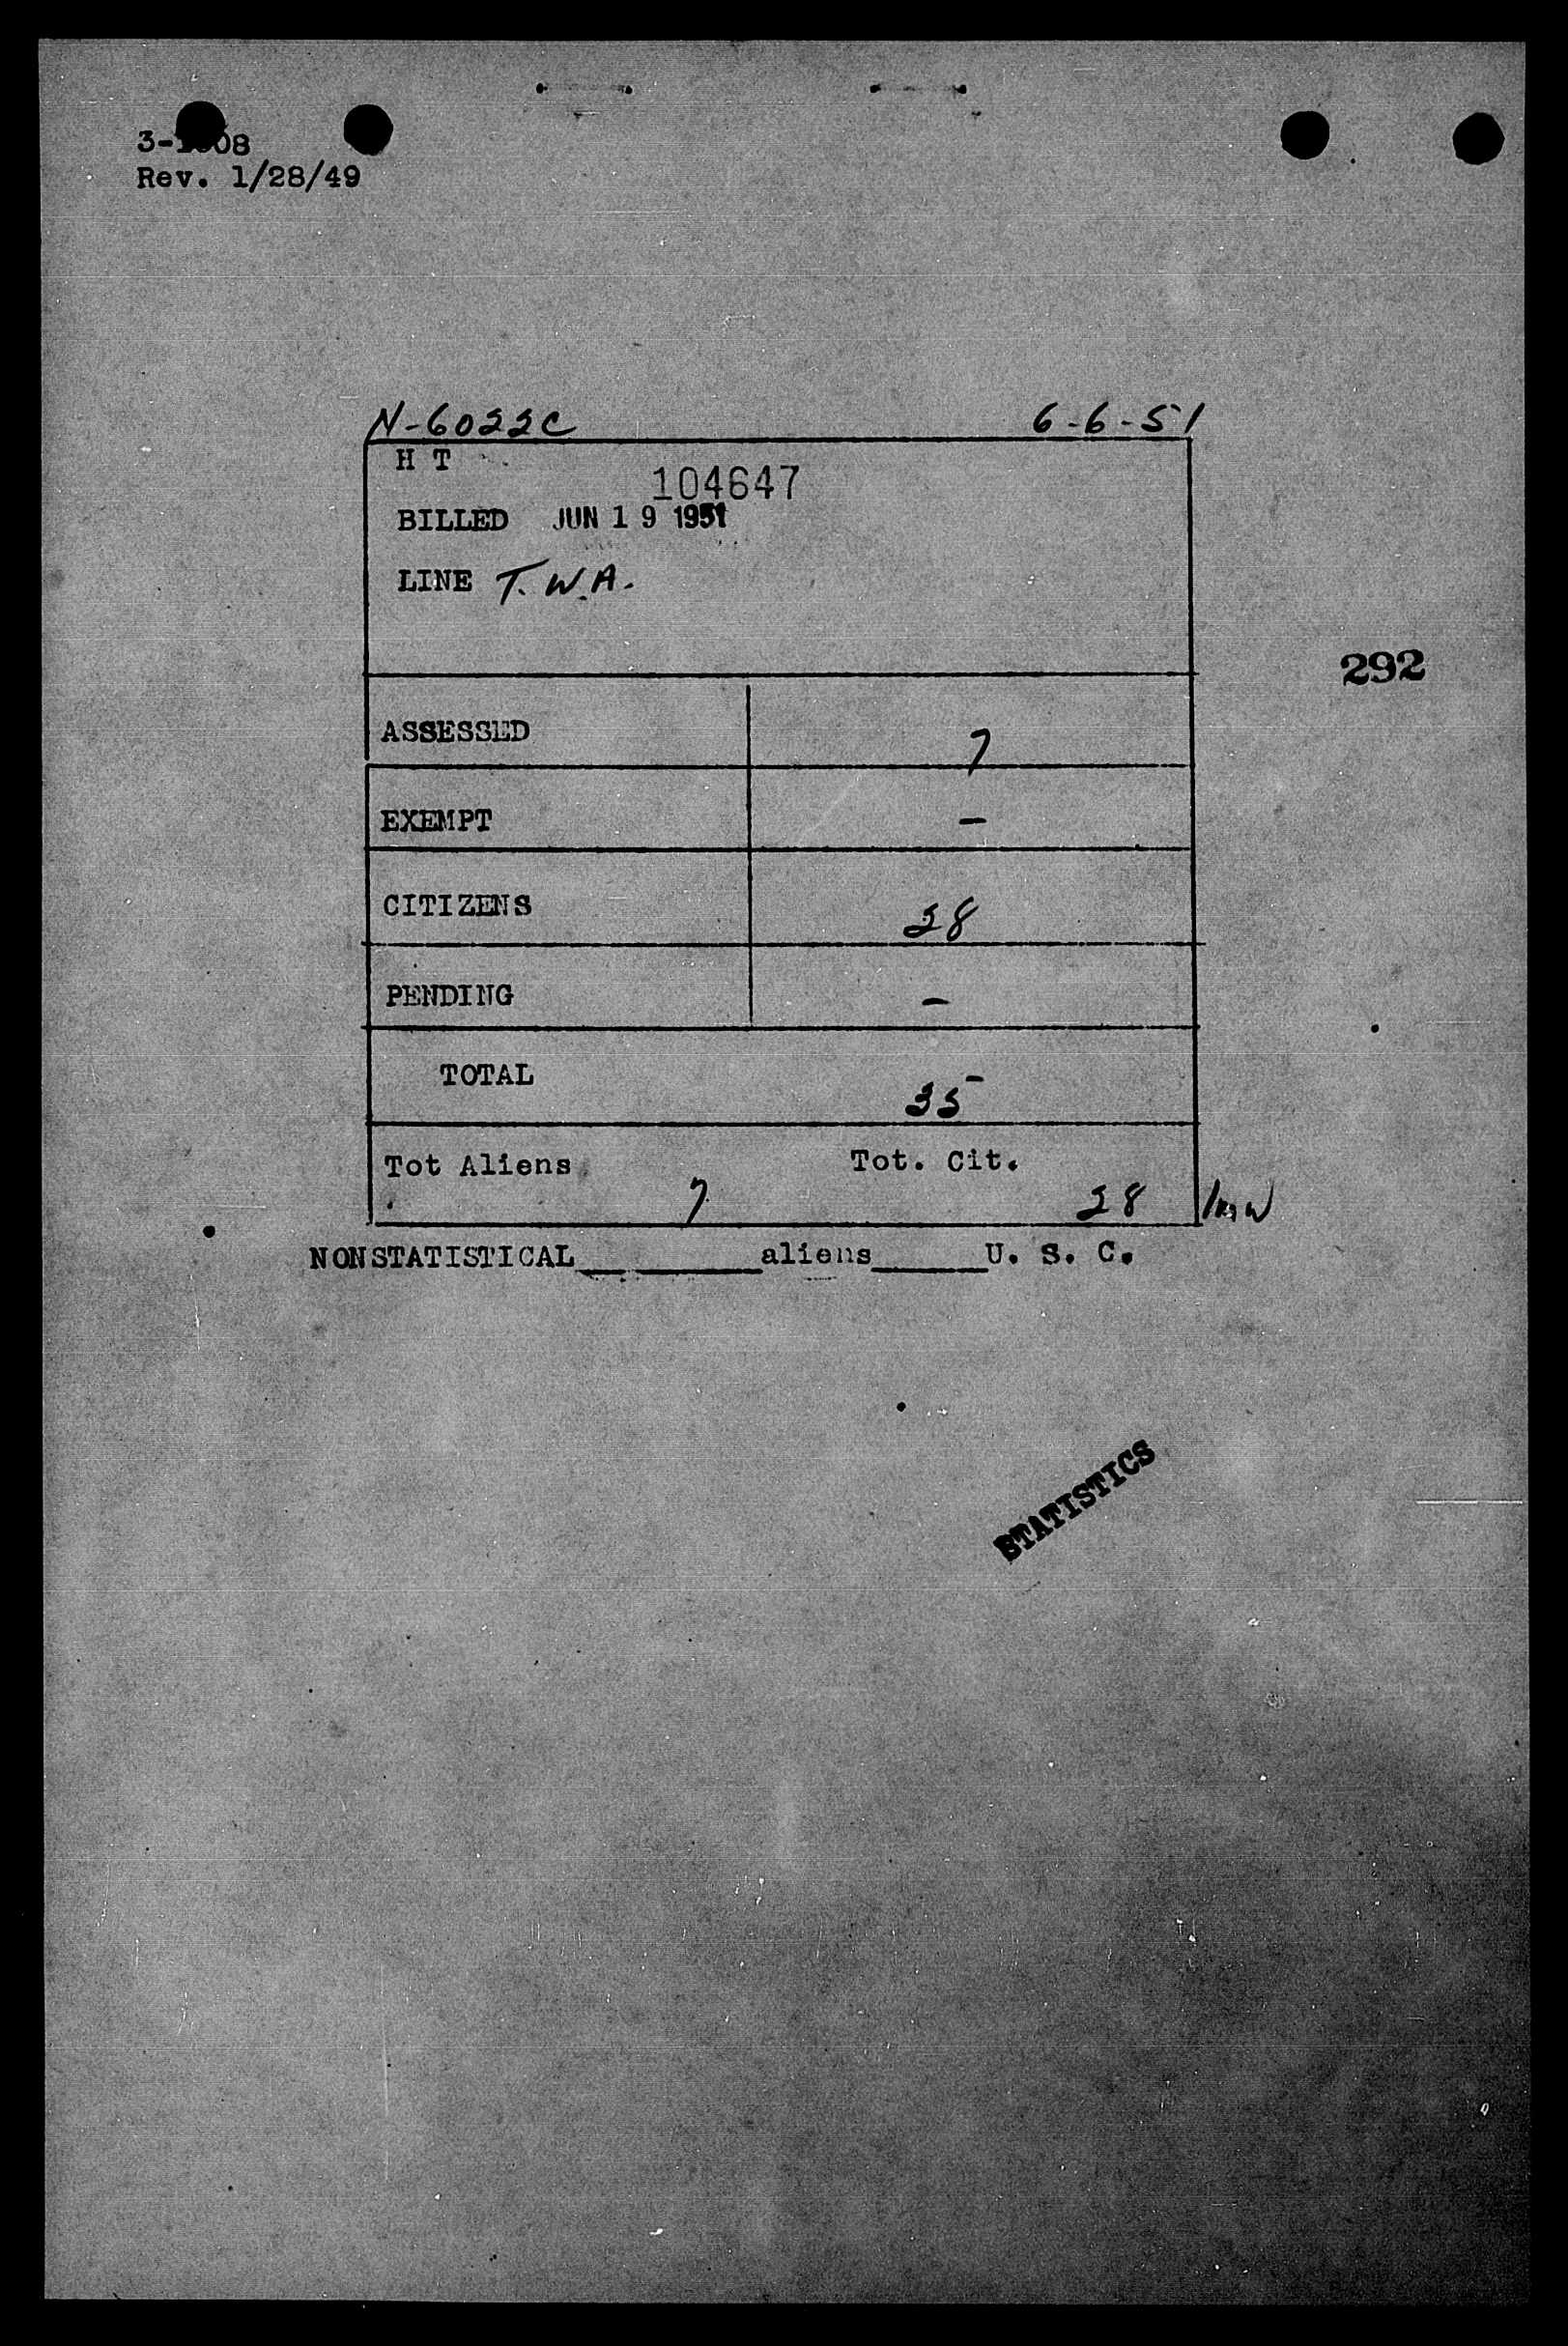 Rev. 1/28/49
N-6022C 6-6-51
H T
104647
BILLED JUN 19 1951
LINE T.W.A.
292
ASSESSED 7
EXEMPT -
CITIZENS 28
PENDING -
TOTAL 35
Tot Aliens Tot. Cit.
7 28
NONSTATISTICAL aliens U. S. C.
STATISTICS